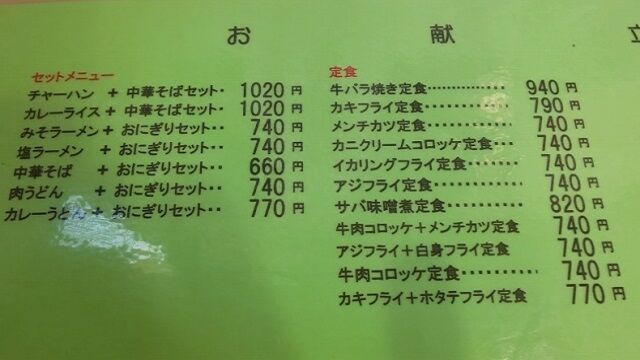 お 献 立
セットメニュー
チャーハン + 中華そばセット‥ 1020円
カレーライス + 中華そばセット‥ 1020円
みそラーメン + おにぎりセット‥ 740円
塩ラーメン + おにぎりセット‥ 740円
中華そば + おにぎりセット‥ 660円
肉うどん + おにぎりセット‥ 740円
カレーうどん + おにぎりセット‥ 770円
定食
牛バラ焼き定食…………… 940円
カキフライ定食………… 790円
メンチカツ定食………… 740円
カニクリームコロッケ定食…… 740円
イカリングフライ定食……… 740円
アジフライ定食………… 740円
サバ味噌煮定食………… 820円
牛肉コロッケ+メンチカツ定食 740円
アジフライ+白身フライ定食 740円
牛肉コロッケ定食………… 740円
カキフライ+ホタテフライ定食 770円